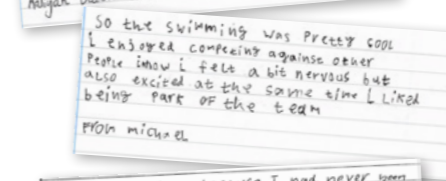 So the swimming was pretty cool
i enjoyed competing against other
people i felt a bit nervous but
also excited at the same time i liked
being part of the team
from michael
I had never been